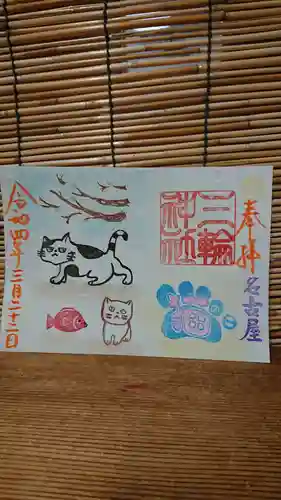 奉拝
名古屋
三輪
神社
猫の日
令和四年二月二十二日